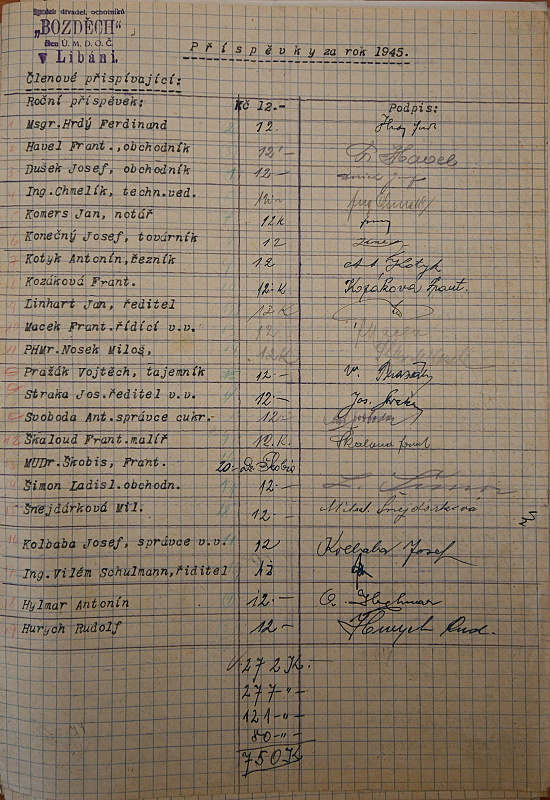 Spolek divadel. ochotníků
„BOZDĚCH“
člen Ú. M. D. O. Č.
v Libáni.
Příspěvky za rok 1945.
Členové přispívající:
Roční příspěvek: Kč 12.- Podpis:
Msgr.Hrdý Ferdinand 12.
Havel Frant.,obchodník 12'- Havel
Dušek Josef, obchodník 12-
Ing.Chmelík, techn.ved. 12-
Komers Jan, notář 12K
Konečný Josef, továrník 12
Kotyk Antonín,řezník 12 Kotyk
Kozáková Frant. 12.K Kozáková Frant.
Linhart Jan, ředitel 12.K
Macek Frant.řídící v.v. 12 Macek
PHMr.Nosek Miloš, 12K
Pražák Vojtěch, tajemník 12.- V. Pražák
Straka Jos.ředitel v.v. 12.- Jos. Straka
Svoboda Ant.správce cukr. 12-
Škaloud Frant.malíř 12.K. Škaloud Frant
MUDr.Škobis, Frant. 20.- Dr Škobis
Šimon Ladisl.obchodn. 12.-
Šnejdárková Mil. 12.- Šnejdárková
Kolbaba Josef, správce v.v. 12 Kolbaba Josef
Ing.Vilém Schulmann,řiditel 12
Hylmar Antonín 12.- A. Hylmar
Hurych Rudolf 12.- Hurych Rud.
272K.
277-"-
121-"-
80-"-
750K